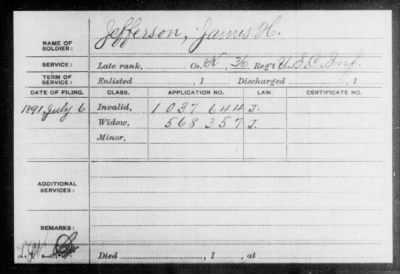 Jefferson, James H.
NAME OF SOLDIER:
SERVICE: Late rank, Co. K, 36 Reg't U.S.C. Inf.
TERM OF SERVICE: Enlisted , 1 Discharged , 1
DATE OF FILING. CLASS. APPLICATION NO. LAW. CERTIFICATE NO.
1891, July 6 Invalid, 1037644 J.
Widow, 568357 J.
Minor,
ADDITIONAL SERVICES:
REMARKS:
Died , 1 , at